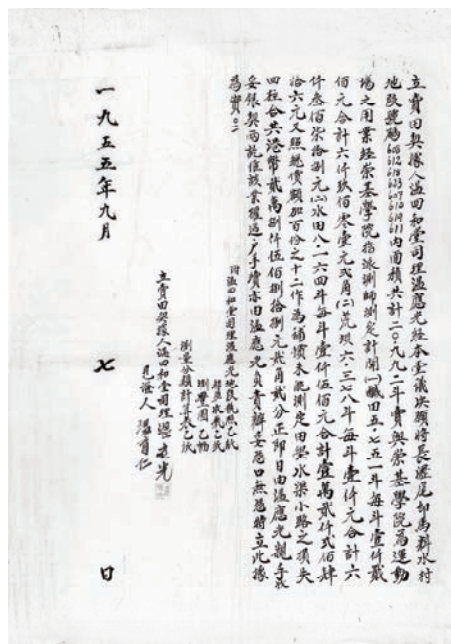 立賣田契據人溫四和堂司理溫應光經本堂議決願將長瀝尾即馬料水村
地段號碼 內面積共計二〇.九九二斗賣與崇基學院為運動
場之用業經崇基學院指派測師測定計開(一)鹹田五.七五一斗每斗壹仟貳
佰元合計六仟玖佰零壹元弍角(二)荒埧六.三七八斗每斗壹仟元合計六
仟叁佰柒拾捌元(三)水田八.一六四斗每斗壹仟伍佰元合計壹萬貳仟弍佰肆
拾六元又照總價額加百份之十二作為補償未能測定田塱水渠小路之損失
四柱合共港幣貳萬捌仟伍佰捌拾捌元貳角貳分正即日由溫應光親手收
妥銀契兩訖催該業權過戶手續亦由溫應光負責辦妥恐口無憑特立此據
為實
附溫四和堂司理溫應光地民執照乙紙
測量圖乙幅
測量分類計算表乙紙
立賣田契據人溫四和堂司理溫應光
見證人 溫官仁
一九五五年九月 七 日